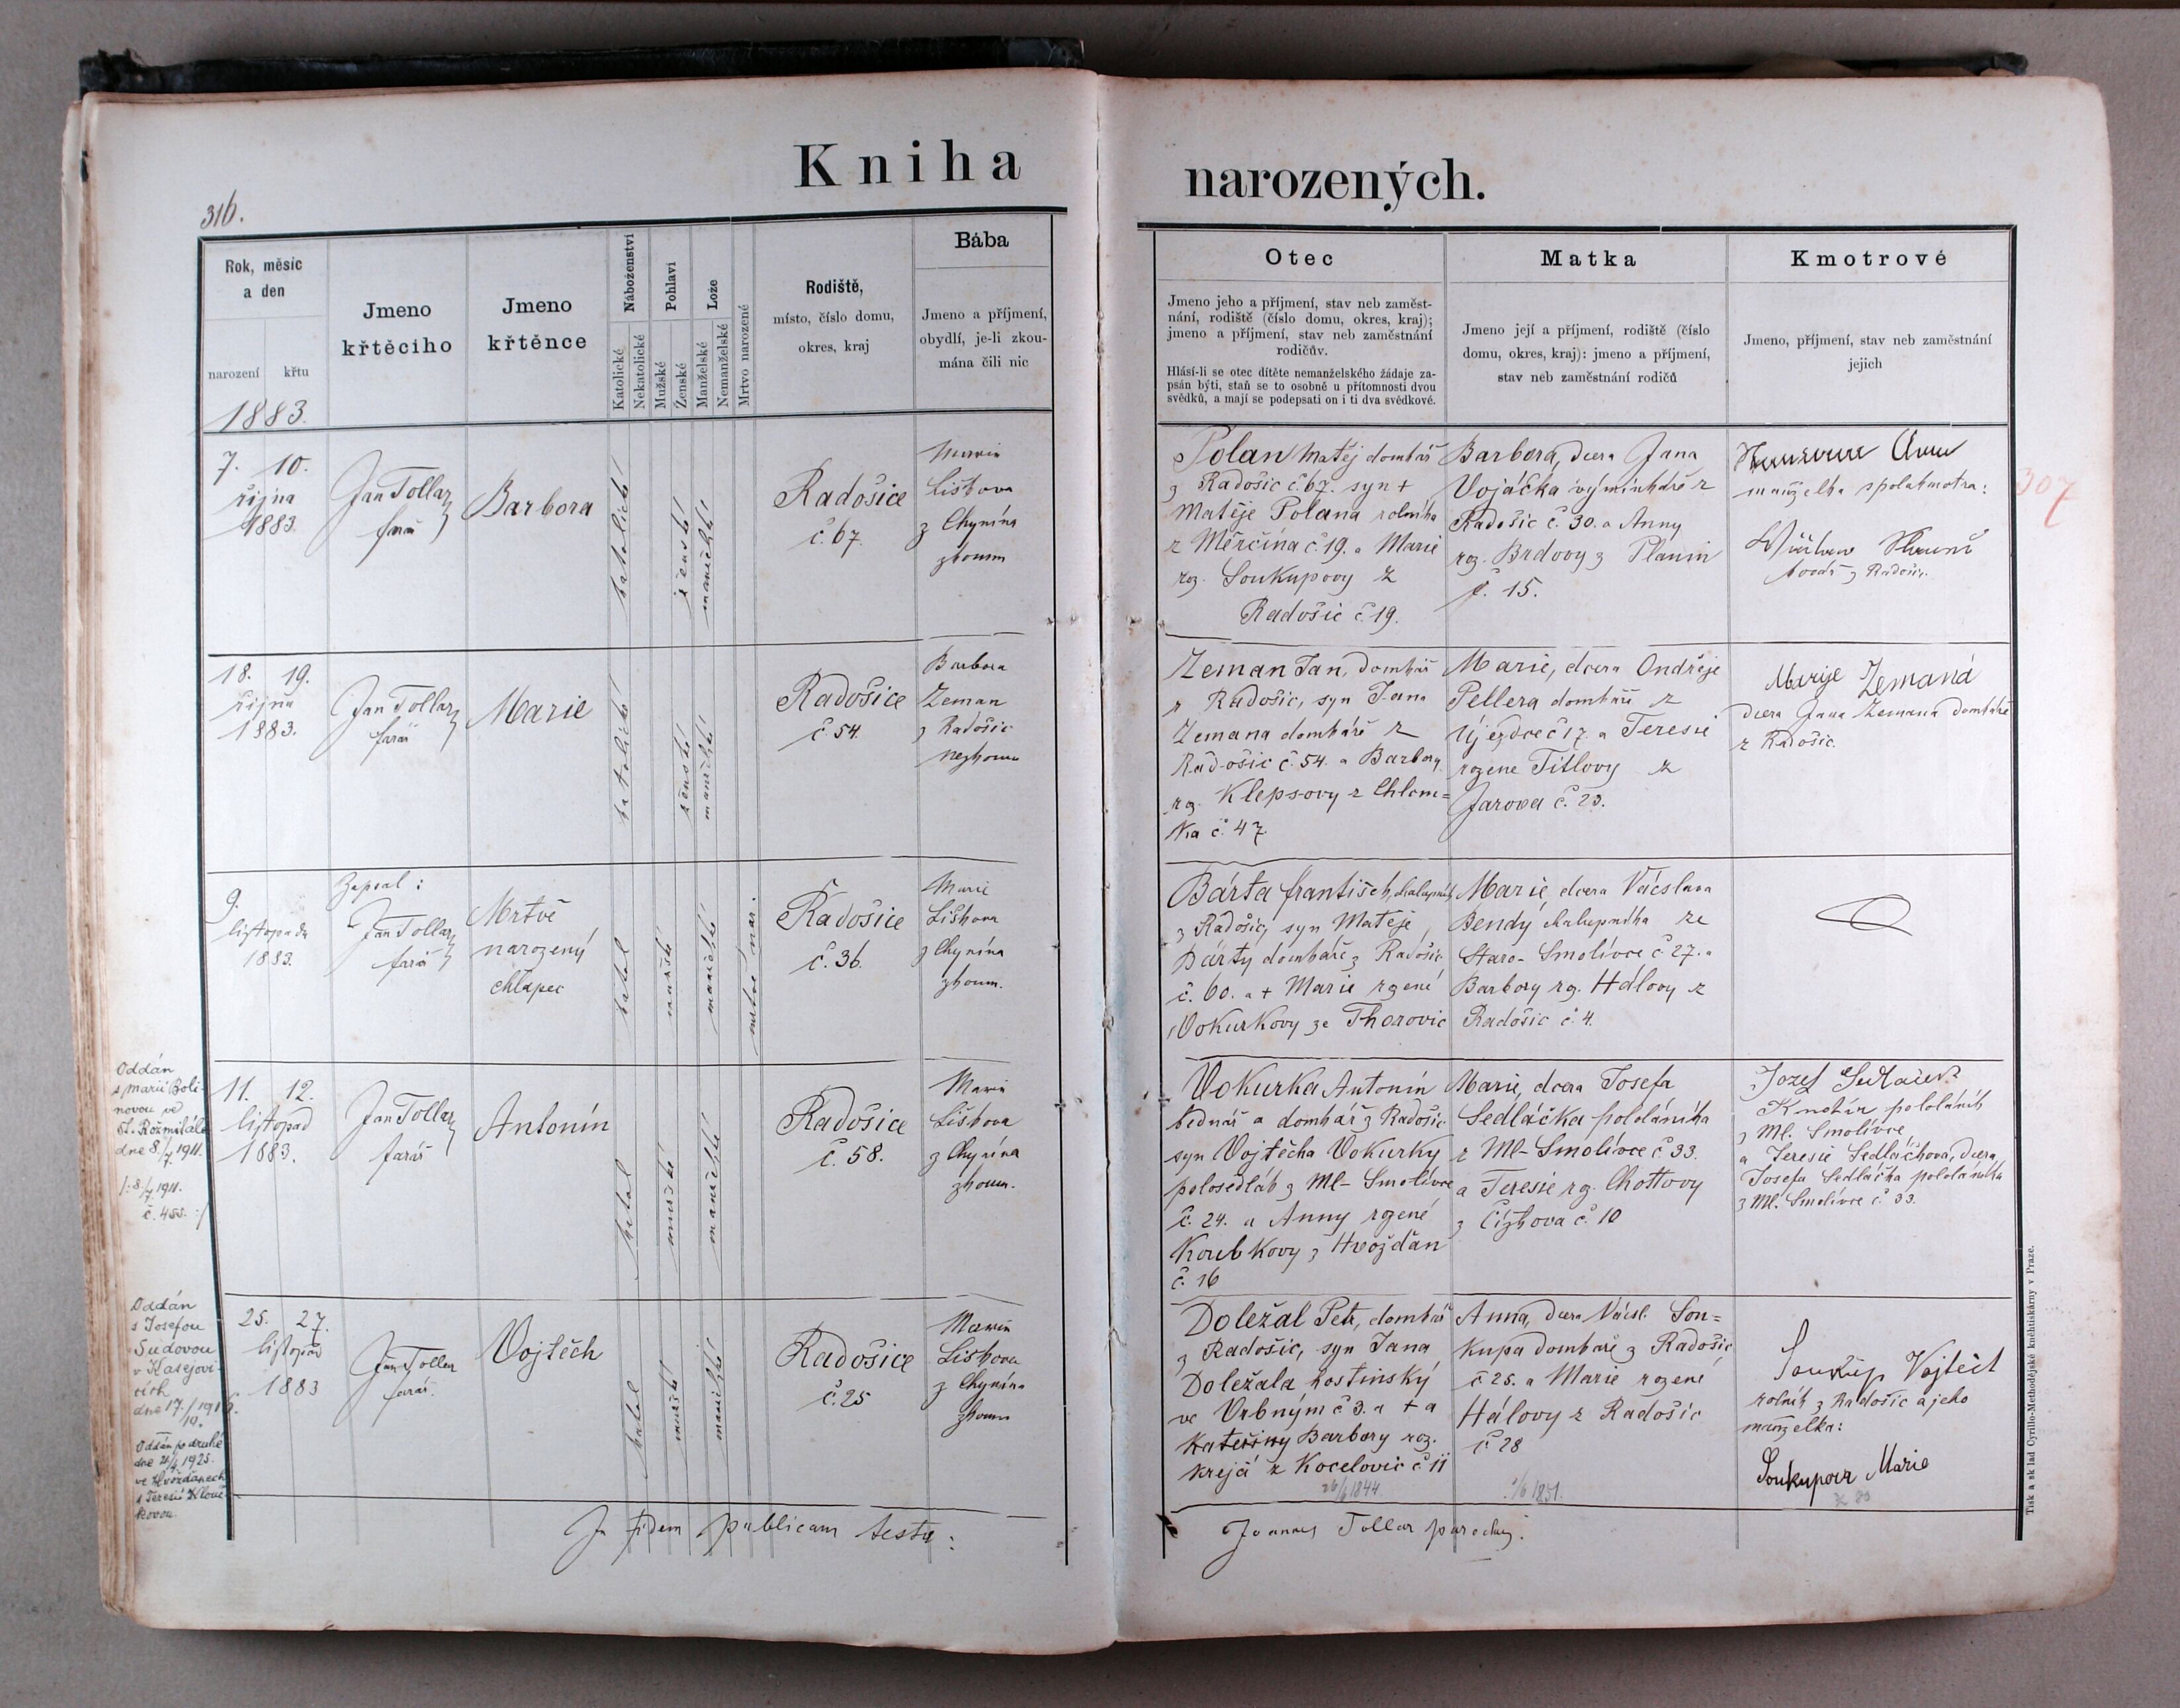 Kniha narozených.
316.
307
Rok, měsíc
a den
narození křtu
1883.
Jmeno
křtěcího
Jmeno
křtěnce
Náboženství
Katolické
Nekatolické
Pohlaví
Mužské
Ženské
Lože
Manželské
Nemanželské
Mrtvo narozené
Rodiště,
místo, číslo domu,
okres, kraj
Bába
Jmeno a příjmení,
obydlí, je-li zkou-
mána čili nic
Otec
Jmeno jeho a příjmení, stav neb zaměst-
nání, rodiště (číslo domu, okres, kraj);
jmeno a příjmení, stav neb zaměstnání
rodičův.
Hlásí-li se otec dítěte nemanželského žádaje za-
psán býti, staň se to osobně u přítomnosti dvou
svědků, a mají se podepsati on i ti dva svědkové.
Matka
Jmeno její a příjmení, rodiště (číslo
domu, okres, kraj): jmeno a příjmení,
stav neb zaměstnání rodičů
Kmotrové
Jmeno, příjmení, stav neb zaměstnání
jejich
7. 10.
října
1883.
Jan Tollar
farář
Barbora
katolické
ženské
manželské
Radošice
č. 67.
Marie
Lišková
z Chynína
zkoum
Polan Matěj domkář
z Radošic č. 67. syn +
Matěje Polana rolníka
z Měrčína č. 19. a Marie
roz. Soukupovy z
Radošic č. 19.
Barbora, dcera Jana
Vojáčka výminkáře z
Radošic č. 30. a Anny
roz. Brdovy z Planin
č. 15.
manželka spolukmotra:
z Radošic.
18. 19.
října
1883.
Jan Tollar
farář
Marie
katolické
ženské
manželské
Radošice
č 54.
Barbora
Zeman
z Radošic
nezkoum
Zeman Jan, domkář
z Radošic, syn Jana
Zemana domkáře z
Radošic č. 54. a Barbory
rz. Klepsovy z Chlum=
ka č. 47.
Marie, dcera Ondřeje
Pellera domkáře z
Újezdce č 17. a Teresie
rozene Titlovy z
Jarova č. 23.
Marije Zemaná
dcera Jana Zemana domkáře
z Radošic.
9.
listopadu
1883.
Zapsal:
Jan Tollar
farář
Mrtvě
narozený
chlapec
katol
mužské
manželské
mrtvě nar.
Radošice
č. 36.
Marie
Lišková
z Chynína
zkoum.
Bárta František, chalupník
z Radošic, syn Matěje
Bárty domkáře z Radošic
č. 60. a + Marie rzené
Vokurkovy ze Thorovic
Marie, dcera Václava
Bendy chalupníka ze
Staro-Smolivce č 27. a
Barbory rz. Hálovy z
Radošic č. 4.
Oddán
s Marií Boli-
novou ve
St. Rožmitále
dne 8./7. 1911.
/: 8./7. 1911.
č. 455. :/
11. 12.
listopad
1883.
Jan Tollar
farář
Antonín
katol
mužské
manželské
Radošice
č. 58.
Marie
Lišková
z Chynína
zkoum.
Vokurka Antonín
bednář a domkář z Radošic
syn Vojtěcha Vokurky
polosedlák z Ml-Smolivce
č. 24. a Anny rzené
Koubkovy z Hvožďan
č. 16
Marie, dcera Josefa
Sedláčka pololáníka
z Ml-Smolivce č 33.
a Teresie rz. Chottovy
z Čížkova č. 10
Jozef Sedláček
Kmotr pololáník
z Ml. Smolivce
a Teresie Sedláčkova, dcera
Josefa Sedláčka pololáníka
z Ml. Smolivce č. 33.
Oddán
s Josefou
Sudovou
v Kasejovi-
cích
dne 17./
Oddán po druhé
dne 21/4 1925.
ve Hvožďanech
s Teresií
25. 27.
listopad
1883
Jan Tollar
farář.
Vojtěch
katol
mužské
manželské
Radošice
č. 25
Marie
Lišková
z Chynína
zkoum
Doležal Petr, domkář
z Radošic, syn Jana
Doležala hostinský
ve Vrbným č 3. a + a
Kateřiny Barbory roz.
Krejčí z Kocelovic č 11
26/6 1844
Anna, dcera Václ. Sou=
kupa domkáře z Radošic
č 25. a Marie rozené
Hálovy z Radošic
č 28
1/6 1851.
Soukup Vojtěch
rolník z Radošic a jeho
manželka:
Soukupova Marie
In fidem publicam testor:
Joannes Tollar parochus.
Tisk a sklad Cyrillo-Methodějské knihtiskárny v Praze.